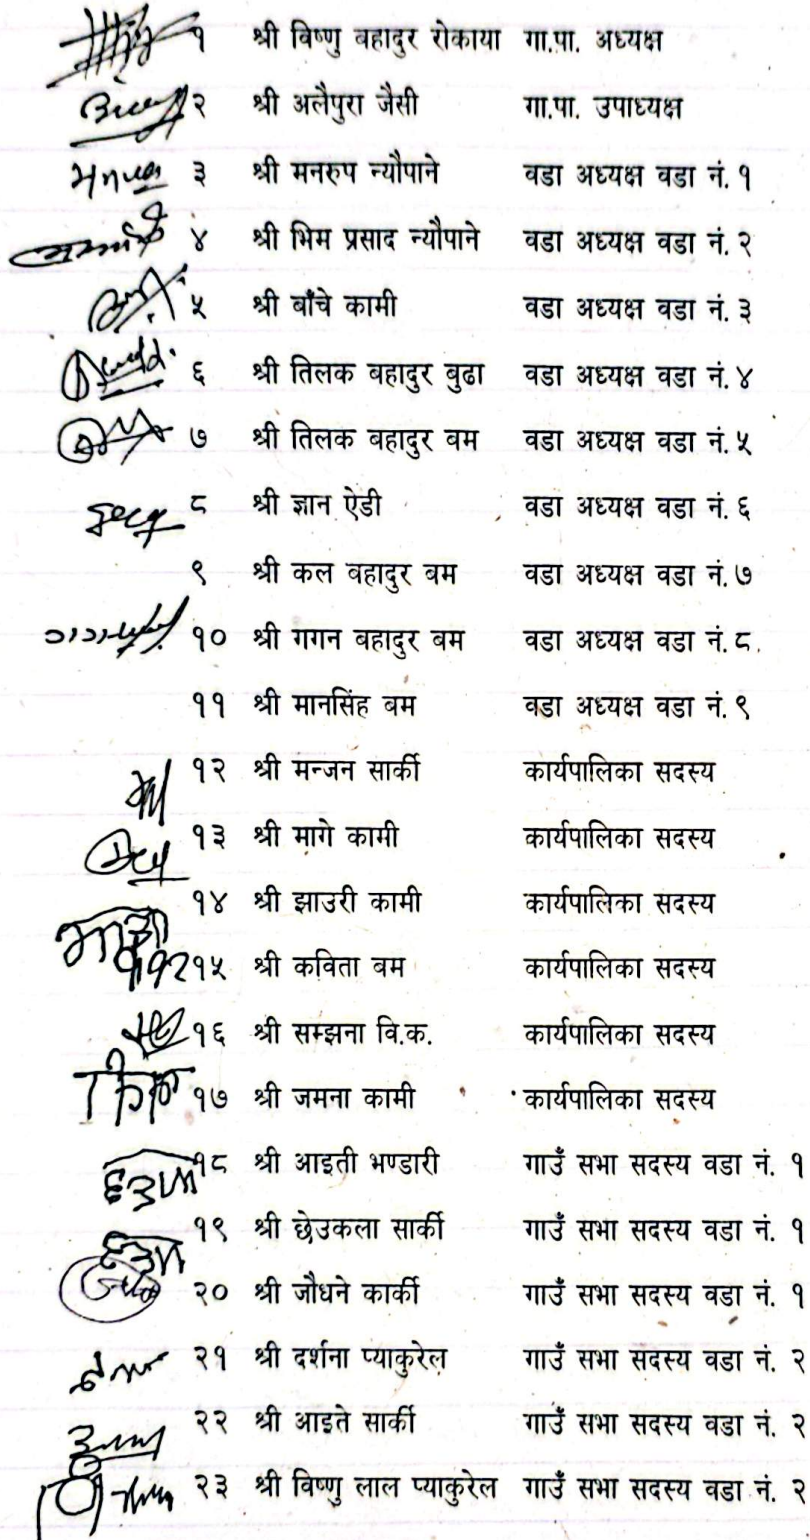 १ श्री विष्णु बहादुर रोकाया गा.पा. अध्यक्ष
२ श्री अलैपुरा जैसी गा.पा. उपाध्यक्ष
३ श्री मनरुप न्यौपाने वडा अध्यक्ष वडा नं. १
४ श्री भिम प्रसाद न्यौपाने वडा अध्यक्ष वडा नं. २
५ श्री बाँचे कामी वडा अध्यक्ष वडा नं. ३
६ श्री तिलक बहादुर बुढा वडा अध्यक्ष वडा नं. ४
७ श्री तिलक बहादुर बम वडा अध्यक्ष वडा नं. ५
८ श्री ज्ञान ऐडी वडा अध्यक्ष वडा नं. ६
९ श्री कल वहादुर बम वडा अध्यक्ष वडा नं. ७
१० श्री गगन बहादुर बम वडा अध्यक्ष वडा नं. ८
११ श्री मानसिंह बम वडा अध्यक्ष वडा नं. ९
१२ श्री मन्जन सार्की कार्यपालिका सदस्य
१३ श्री मागे कामी कार्यपालिका सदस्य
१४ श्री झाउरी कामी कार्यपालिका सदस्य
१५ श्री कविता बम कार्यपालिका सदस्य
१६ श्री सम्झना वि.क. कार्यपालिका सदस्य
१७ श्री जमना कामी कार्यपालिका सदस्य
१८ श्री आइती भण्डारी गाउँ सभा सदस्य वडा नं. १
१९ श्री छेउकला सार्की गाउँ सभा सदस्य वडा नं. १
२० श्री जौधने कार्की गाउँ सभा सदस्य वडा नं. १
२१ श्री दर्शना प्याकुरेल गाउँ सभा सदस्य वडा नं. २
२२ श्री आइते सार्की गाउँ सभा सदस्य वडा नं. २
२३ श्री विष्णु लाल प्याकुरेल गाउँ सभा सदस्य वडा नं. २